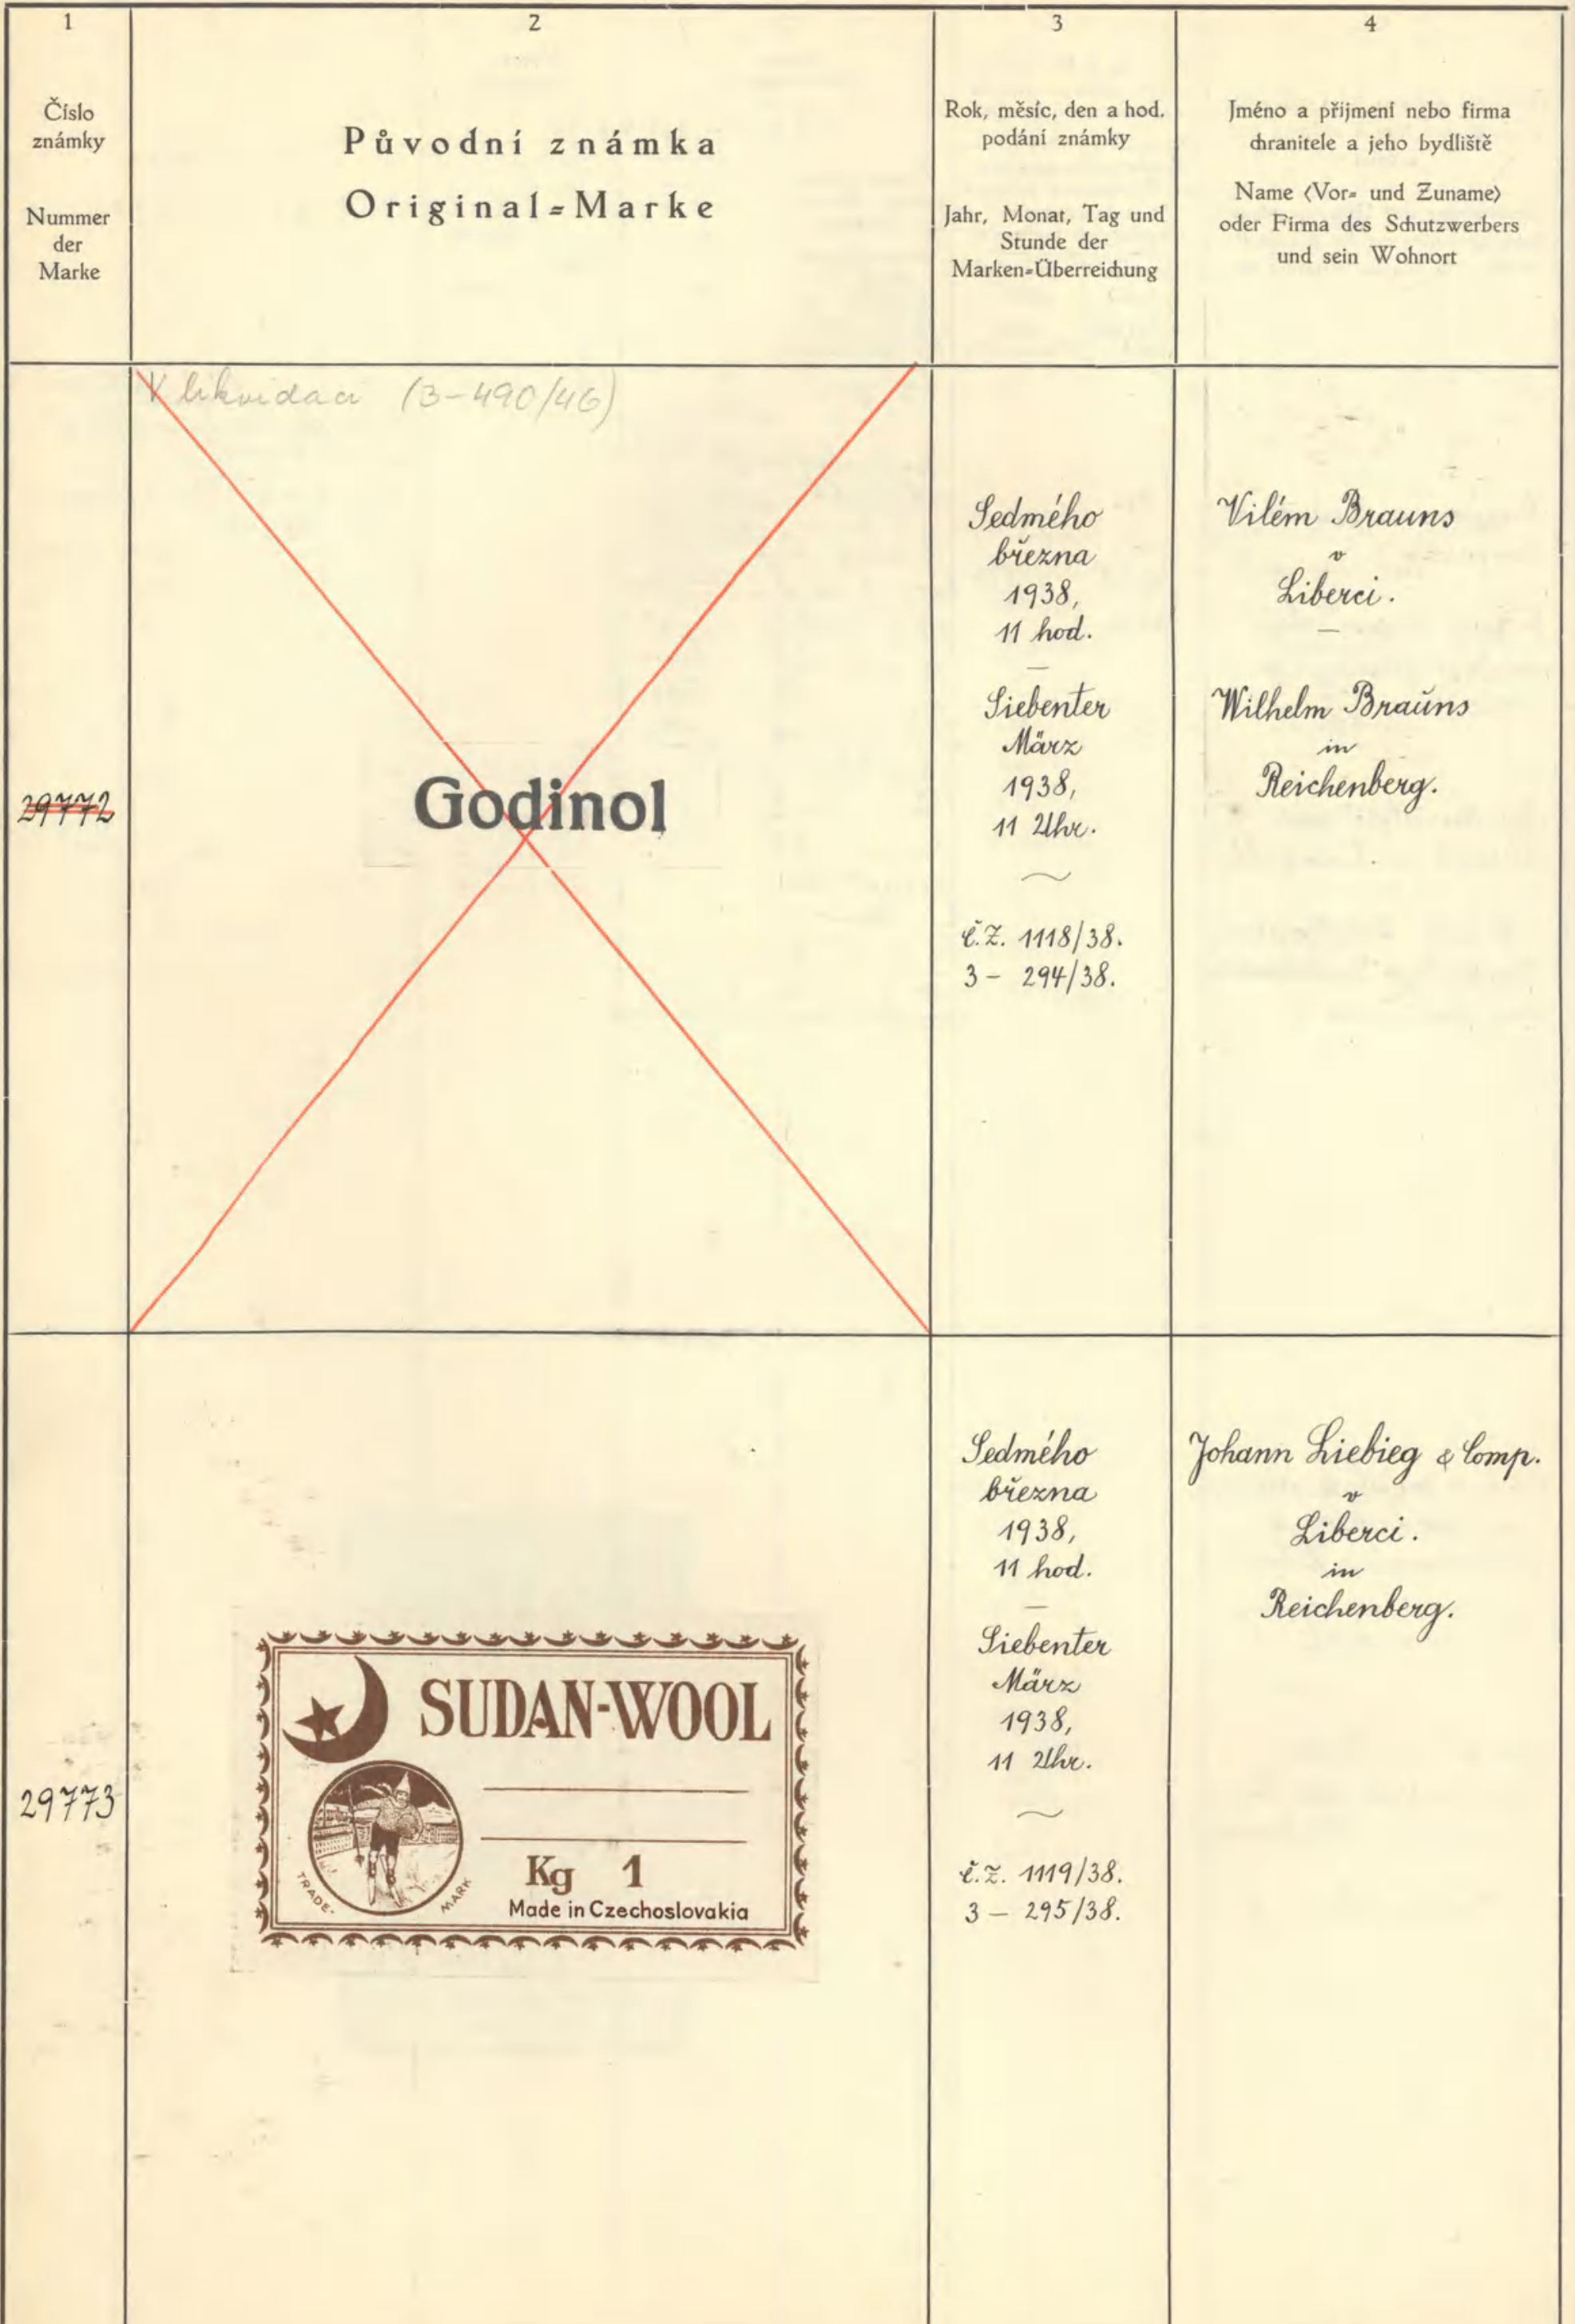 1
Číslo
známky
Nummer
der
Marke
2
Původní známka
Original=Marke
3
Rok, měsíc, den a hod.
podání známky
Jahr, Monat, Tag und
Stunde der
Marken=Überreichung
4
Jméno a přijmení nebo firma
chranitele a jeho bydliště
Name (Vor= und Zuname)
oder Firma des Schutzwerbers
und sein Wohnort
29772
V likvidaci (3-490/46)
Godinol
Sedmého
března
1938,
11 hod.
—
Siebenter
März
1938,
11 Uhr.
č.ž. 1118/38.
3 - 294/38.
Vilém Brauns
v
Liberci.
—
Wilhelm Braŭns
in
Reichenberg.
29773
SUDAN-WOOL
TRADE-MARK
Kg 1
Made in Czechoslovakia
Sedmého
března
1938,
11 hod.
—
Siebenter
März
1938,
11 Uhr.
č.ž. 1119/38.
3 - 295/38.
Johann Liebieg & Comp.
v
Liberci.
in
Reichenberg.